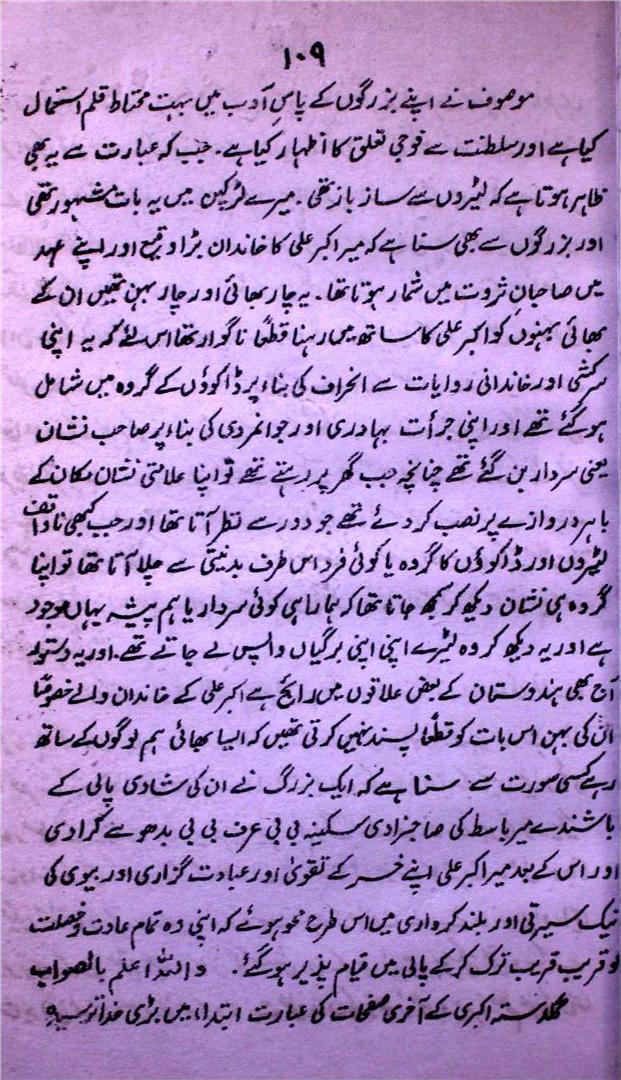 ۱۰۹
موصوف نے اپنے بزرگوں کے پاسِ آدب میں بہت محتاط قلم استعمال
کیا ہے اور سلطنت سے فوجی تعلق کا اظہار کیا ہے۔ جب کہ عبارت سے یہ بھی
ظاہر ہوتا ہے کہ لیٹروں سے ساز باز تھی۔ میرے لڑکپن میں یہ بات مشہور تھی
اور بزرگوں سے بھی سنا ہے کہ میر اکبر علی کا خاندان بڑا وقیع اور اپنے عہد
میں صاحبانِ ثروت میں شمار ہوتا تھا۔ یہ چار بھائی اور چار بہن تھیں ان کے
بھائی بہنوں کو اکبر علی کا ساتھ میں رہنا قطعًا ناگوار تھا اس لئے کہ یہ اپنی
سرکشی اور خاندانی روایات سے انحراف کی بناء پر ڈاکوؤں کے گروہ میں شامل
ہو گئے تھے اور اپنی جرأت بہادری اور جوانمردی کی بناء پر صاحب نشان
یعنی سردار بن گئے تھے چنانچہ جب گھر پر رہتے تھے تو اپنا علامتی نشان مکان کے
باہر دروازے پر نصب کر دئے تھے جو دور سے نظر آتا تھا اور جب کبھی ناواقف
لیٹروں اور ڈاکوؤں کا گروہ یا کوئی فرد اس طرف بدنیتی سے چلا آتا تھا تو اپنا
گروہ ہی نشان دیکھ کر سمجھ جاتا تھا کہ ہمارا ہی کوئی سردار یا ہم پیشہ یہاں موجود
ہے اور یہ دیکھ کر وہ لیٹرے اپنی اپنی برگیاں واپس لے جاتے تھے۔ اور یہ دستور
آج بھی ہندوستان کے بعض علاقوں میں رائج ہے اکبر علی کے خاندان والے خصوصًا
ان کی بہن اس بات کو قطعًا پسند نہیں کرتی تھیں کہ ایسا بھائی ہم لوگوں کے ساتھ
رہے کسی صورت سے سنا ہے کہ ایک بزرگ نے ان کی شادی پالی کے
باشندے میر باسط کی صاحبزادی سکینہ بی بی عرف بی بی بدھو سے کرا دی
اور اس کے بعد میر اکبر علی اپنے خسر کے تقویٰ اور عبادت گزاری اور بیوی کی
نیک سیرتی اور بلند کرداری میں اس طرح محو ہوئے کہ اپنی وہ تمام عادت و خصلت
کو قریب قریب ترک کر کے پالی میں قیام پذیر ہو گئے۔ واللہ اعلم بالصواب
گلدستہ اکبری کے آخری صفحات کی عبارت ابتداء میں بڑی